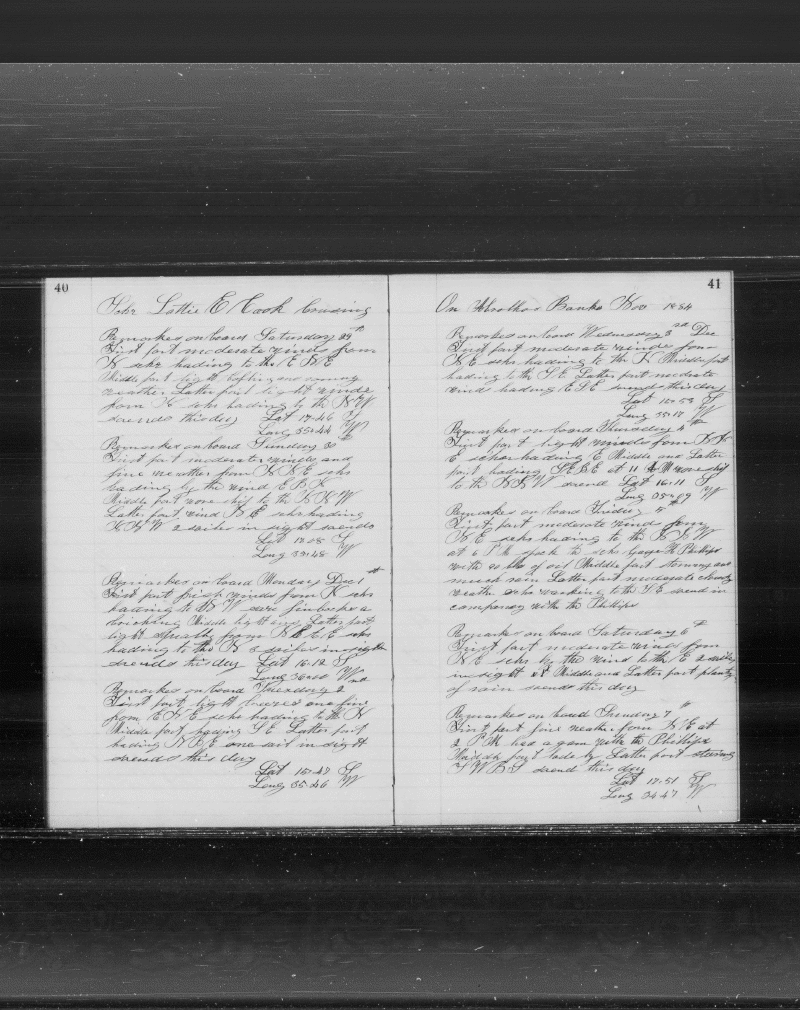 40
Schr Lottie E Cook Cruising
Remarks on board Saturday 29th
First part moderate winds from
N schr heading to the E N E
Middle part light baffling and
weather Latter part light winds
from N schr heading to the N W
so ends this day Lat 17.46 S
Long 35.44 W
Remarks on board Sunday 30th
First part moderate winds and
fine weather from N N E schr
heading by the wind
Middle part wore ship to the N N W
Latter part wind N E schr heading
N W 2 sails in sight so ends
Lat S
Long W
Remarks on board Monday Dec 1st
First part fresh winds from N schr
heading to W
Middle light and Latter part
light squally from schr
heading to the N sails in sight
so ends this day Lat 16.12 S
Long W
Remarks on board Tuesday 2nd
First part light breezes and fine
from E N E schr heading to the N
Middle part heading S E Latter part
heading N N E one sail in sight
so ends this day
Lat 15.47 S
Long 35.46 W
41
On Abrolhos Banks Nov 1884
Remarks on board Wednesday 3rd Dec
First part moderate winds from
N E schr heading to the N Middle part
heading to the S E Latter part moderate
wind heading E S E so ends this day
Lat S
Long 35.17 W
Remarks on board Thursday 4th
First part light winds from N N
E schr heading E Middle and Latter
part heading at 11 A M wore ship
to the N N W so end Lat 16.11 S
Long 35.09 W
Remarks on board Friday 5th
First part moderate wind from
N E schr heading to the N W
at 6 P M spoke to schr George H Phillips
with bbls of oil Middle part stormy and
much rain Latter part moderate cloudy
weather schr working to the S E so end in
company with the Phillips
Remarks on board Saturday 6th
First part moderate winds from
N E schr by the wind to the E 2 sails
in sight Middle and Latter part plenty
of rain so ends this day
Remarks on board Sunday 7th
First part fine weather from N E at
2 P M had a gam with the Phillips
Middle part lade by Latter part steering
S W B S so end this day
Lat 17.51 S
Long 34 47 W